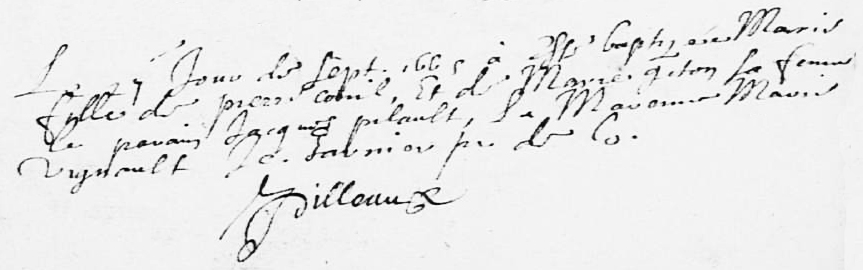 Le 27e Jour de Sept. 1665 a este baptizée Marie
fille de pierre et de Marie giton sa femme
le parain Jacques pilault, la Maraine Marie
vignault